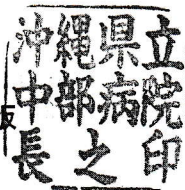 沖縄県立
中部病院
長之印